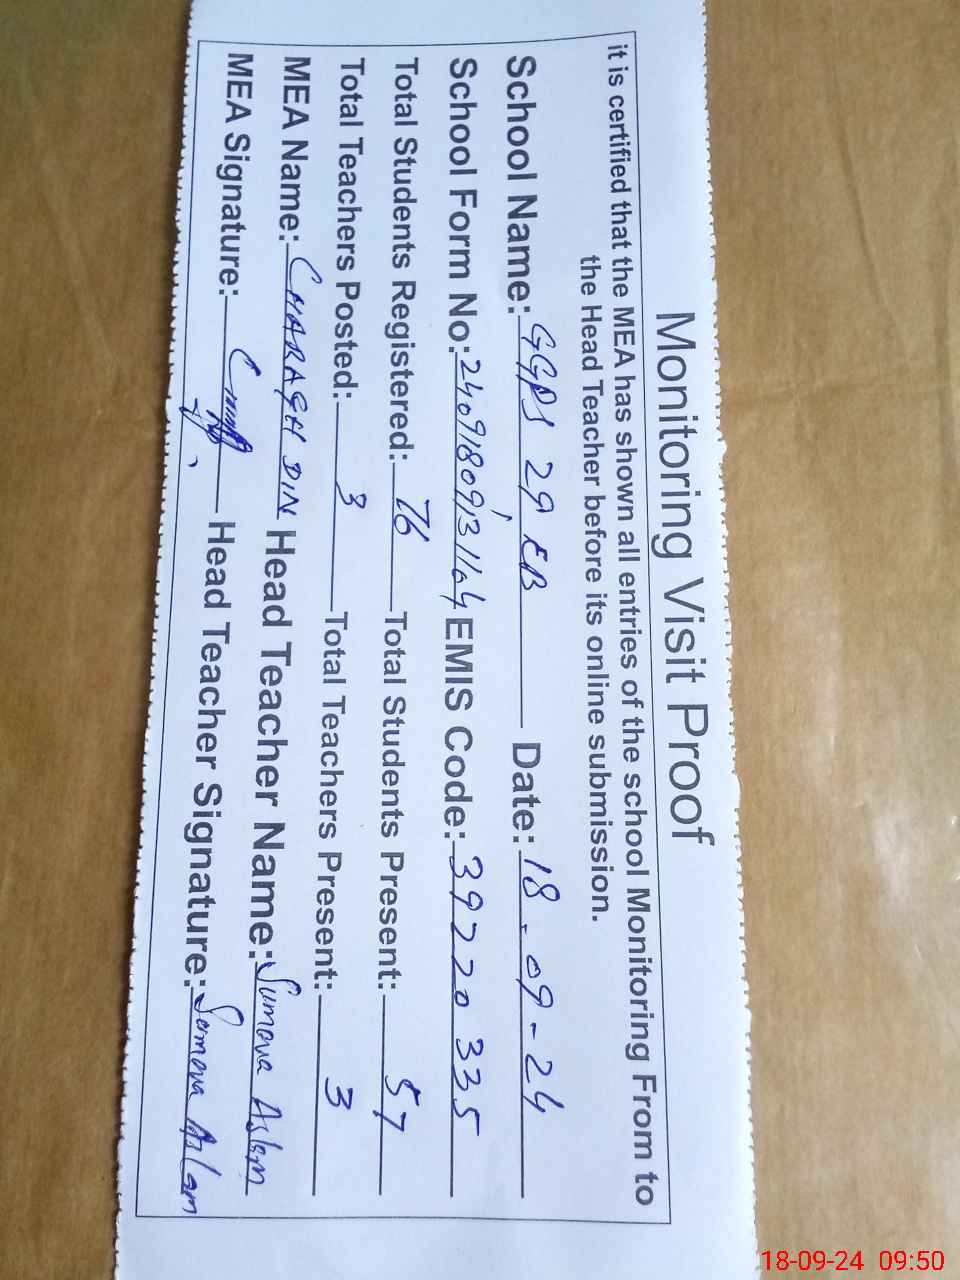 Monitoring Visit Proof
it is certified that the MEA has shown all entries of the school Monitoring From to
the Head Teacher before its online submission.
School Name: GGPS 29 EB Date: 18-09-24
School Form No: 24091809131164 EMIS Code: 39220335
Total Students Registered: 76 Total Students Present: 57
Total Teachers Posted: 3 Total Teachers Present: 3
MEA Name: CHARAGH DIN Head Teacher Name: Sumera Aslam
MEA Signature: Head Teacher Signature: Sumera Aslam
18-09-24 09:50